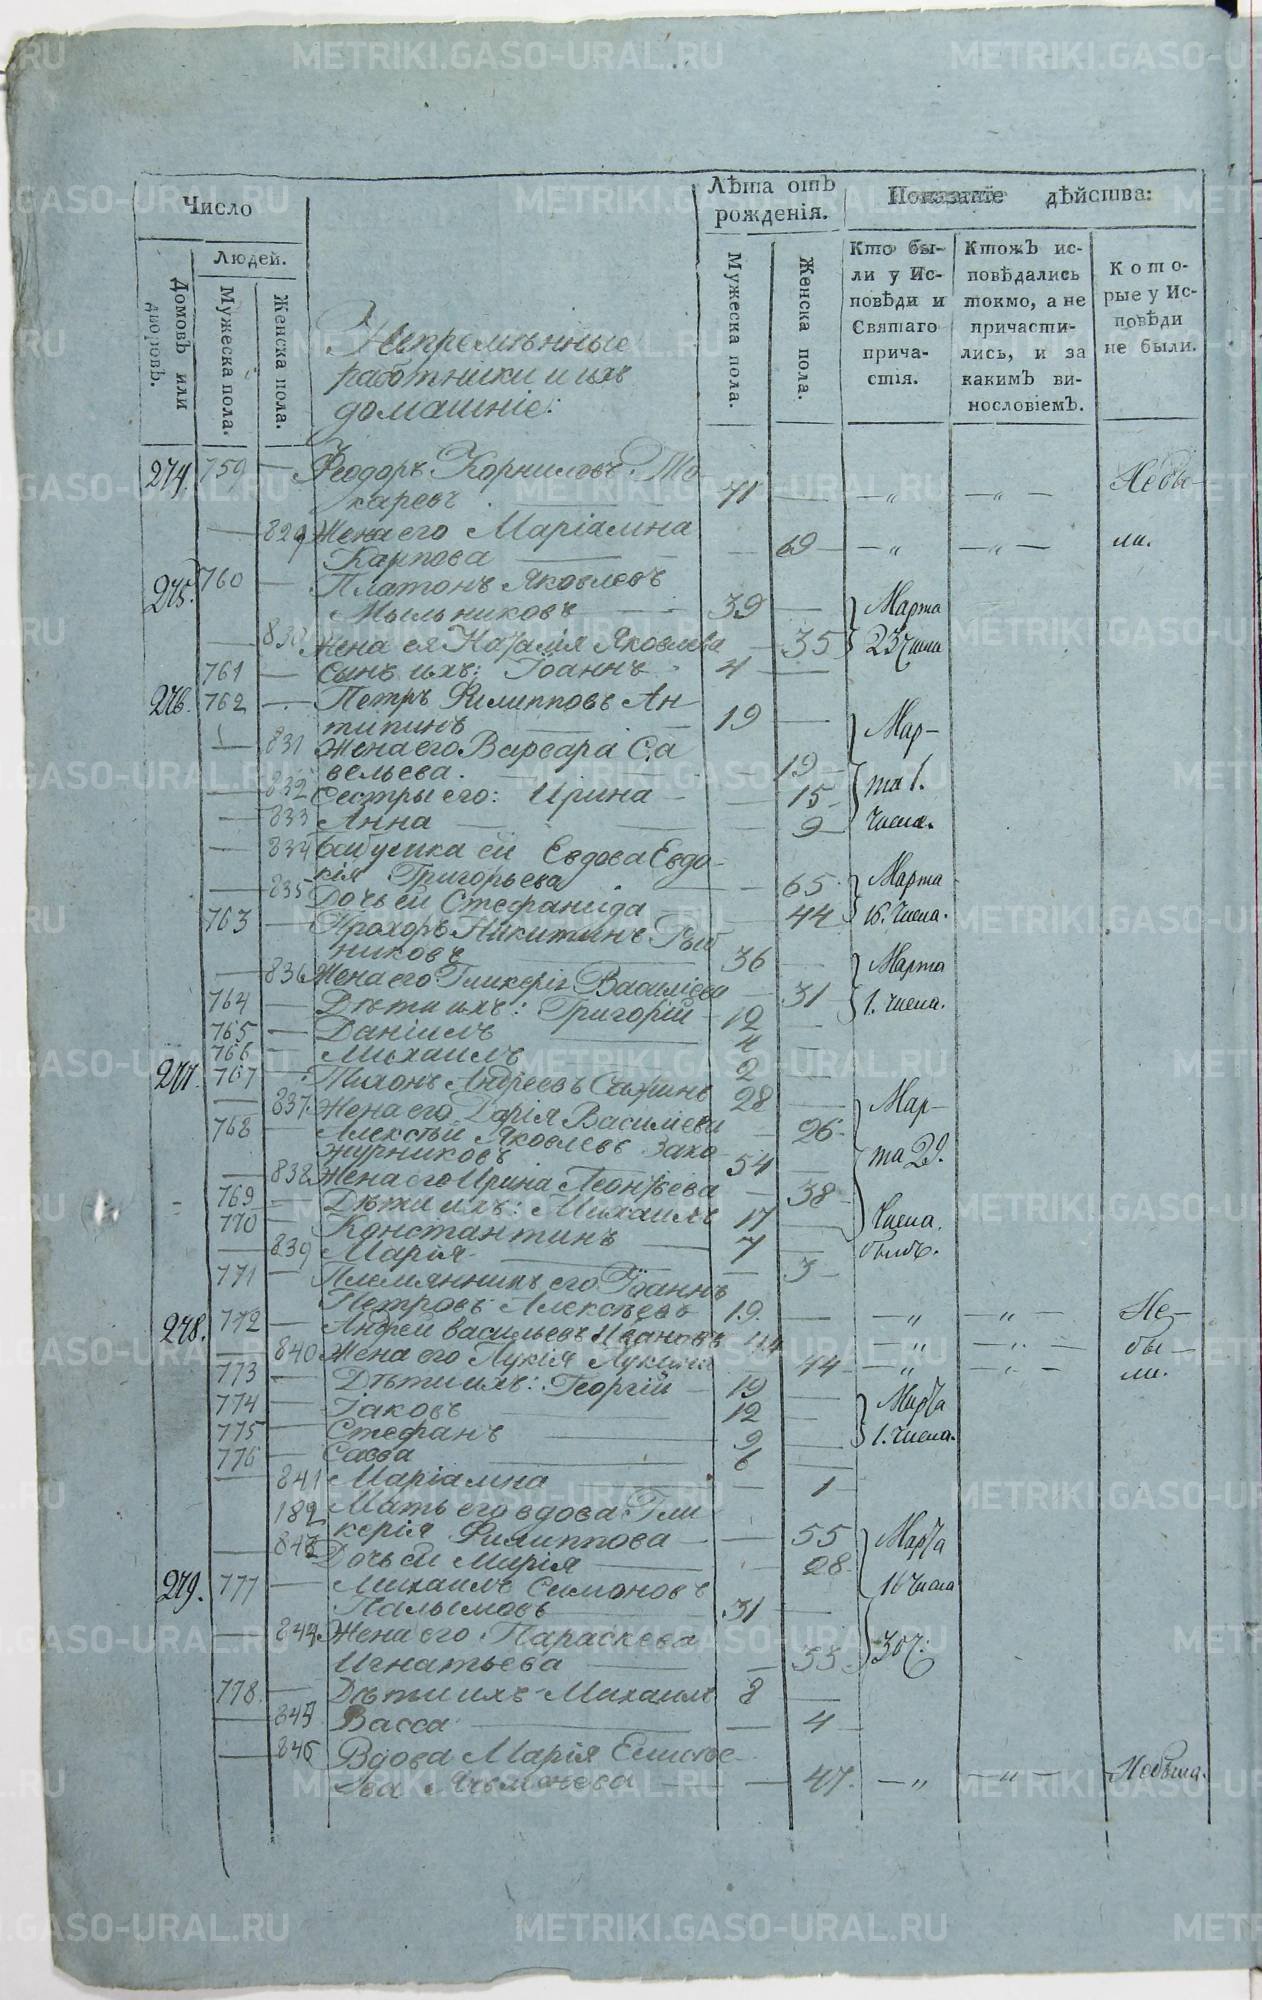 Число
Лѣта отъ рожденія.
Показаніе дѣйства:
Домовъ или дворовъ.
Людей.
Мужеска пола.
Женска пола.
Мужеска пола.
Женска пола.
Кто бы-
ли у Ис-
повѣди и
Святаго
прича-
стія.
Ктожъ ис-
повѣдались
токмо, а не
причасти-
лись, и за
какимъ ви-
нословіемъ.
Кото-
рые у Ис-
повѣди
не были.
Непремѣнные
работники и ихъ
домашніе:
274. 759 — Феодоръ Корниловъ То
каревъ 71 — — „ — „ — Небы-
— 829 Жена его Маріамна
Карпова — 69 — „ — „ — ли.
275. 760 — Платонъ Яковлевъ
Мыльниковъ 39 — Марта
— 830 Жена ея Наталія Яковлева — 35 23 числа
761 — Сынъ ихъ: Іоаннъ 4 —
276. 762 — Петръ Филипповъ Ан-
типинъ 19 — Мар-
— 831 Жена его Варвара Са
вельева. — 19 та 1.
— 832 Сестры его: Ирина — 15
— 833 Анна — 9 числа.
— 834 Бабушка ей Вдова Евдо-
кія Григорьева — 65 Марта
— 835 Дочь ей Стефанида — 44 16. числа.
763 — Прохоръ Никитинъ Рыб
никовъ 36 — Марта
— 836 Жена его Гликерія Василіева — 31 1. числа.
764 — Дѣти ихъ: Григорій 12 —
765 — Даніилъ 4 —
766 — Михаилъ 2 —
277. 767 — Тихонъ Андреевъ 28 — Мар-
— 837 Жена его Дарія Василіева — 26
768 — Алексѣй Яковлевъ Зако
журниковъ 54 — та 29.
— 838 Жена его Ирина Леонтьева — 38
769 — Дѣти ихъ: Михаилъ 17 — числа.
770 — Константинъ 7 —
— 839 Марія — 3
771 — Племянникъ его Іоаннъ
Петровъ Алексѣевъ 19. — — „ — „ — Не-
278. 772 — Андрей Васильевъ Ивановъ 44 — „ — „ — бы-
— 840 Жена его Лукія Лукина — 44 — „ — „ — ли.
773 — Дѣти ихъ: Георгій 19 — Марта
774 — Іаковъ 12 —
775 — Стефанъ 9 — 1. числа.
776 — Савва 6 —
— 841 Маріамна — 1
182 Мать его вдова Гли
керія Филиппова — 55 Марта
— 843 Дочь ей Марія — 28
279. 777 — Михаилъ Симоновъ 16 числа
Палымовъ 31 —
— 844 Жена его Параскева
Игнатьева — 33 30 ч.
778 — Дѣти ихъ Михаилъ 8 —
— 845 Васса — 4
— 846 Вдова Марія
— 47. — „ — „ — Небыла.
METRIKI.GASO-URAL.RU